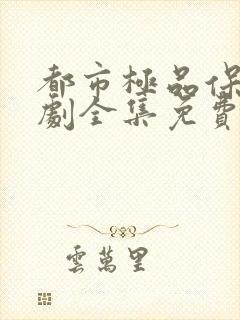 都市極品保
劇全集免費
雲萬里